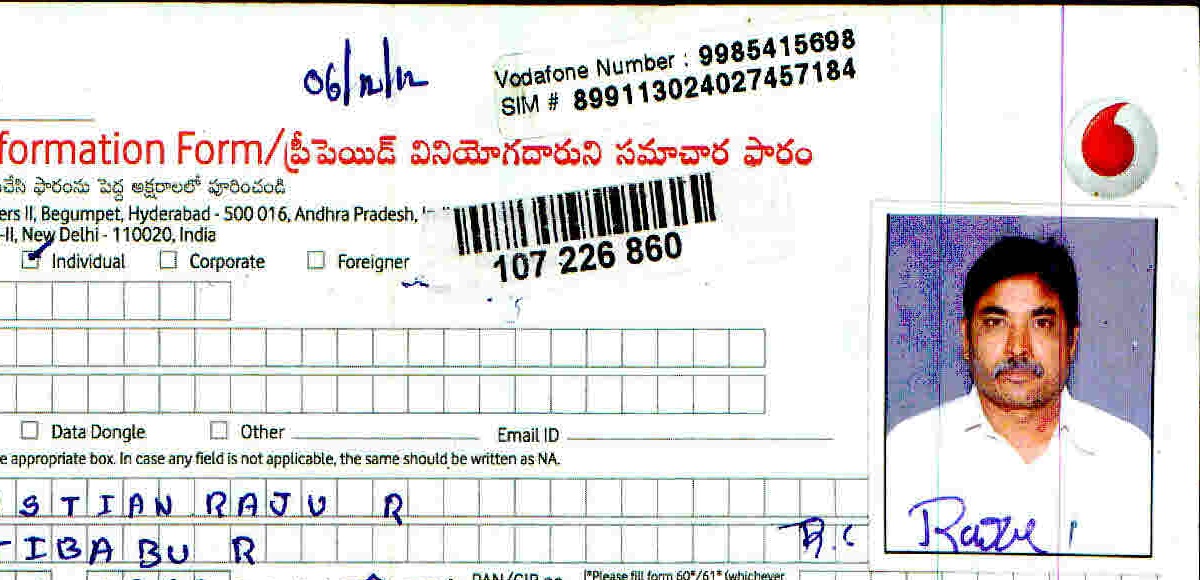 06/12/12
Vodafone Number : 9985415698
SIM # 899113024027457184
formation Form/ప్రీపెయిడ్ వినియోగదారుని సమాచార ఫారం
చేసి ఫారంను పెద్ద అక్షరాలలో పూరించండి
ers II, Begumpet, Hyderabad - 500 016, Andhra Pradesh,
-II, New Delhi - 110020, India
107 226 860
Individual Corporate Foreigner
Data Dongle Other Email ID
e appropriate box. In case any field is not applicable, the same should be written as NA.
STIAN RAJU R
IBABU R
Raju
PAN/GIR
(*Please fill form 60*/61* (whichever